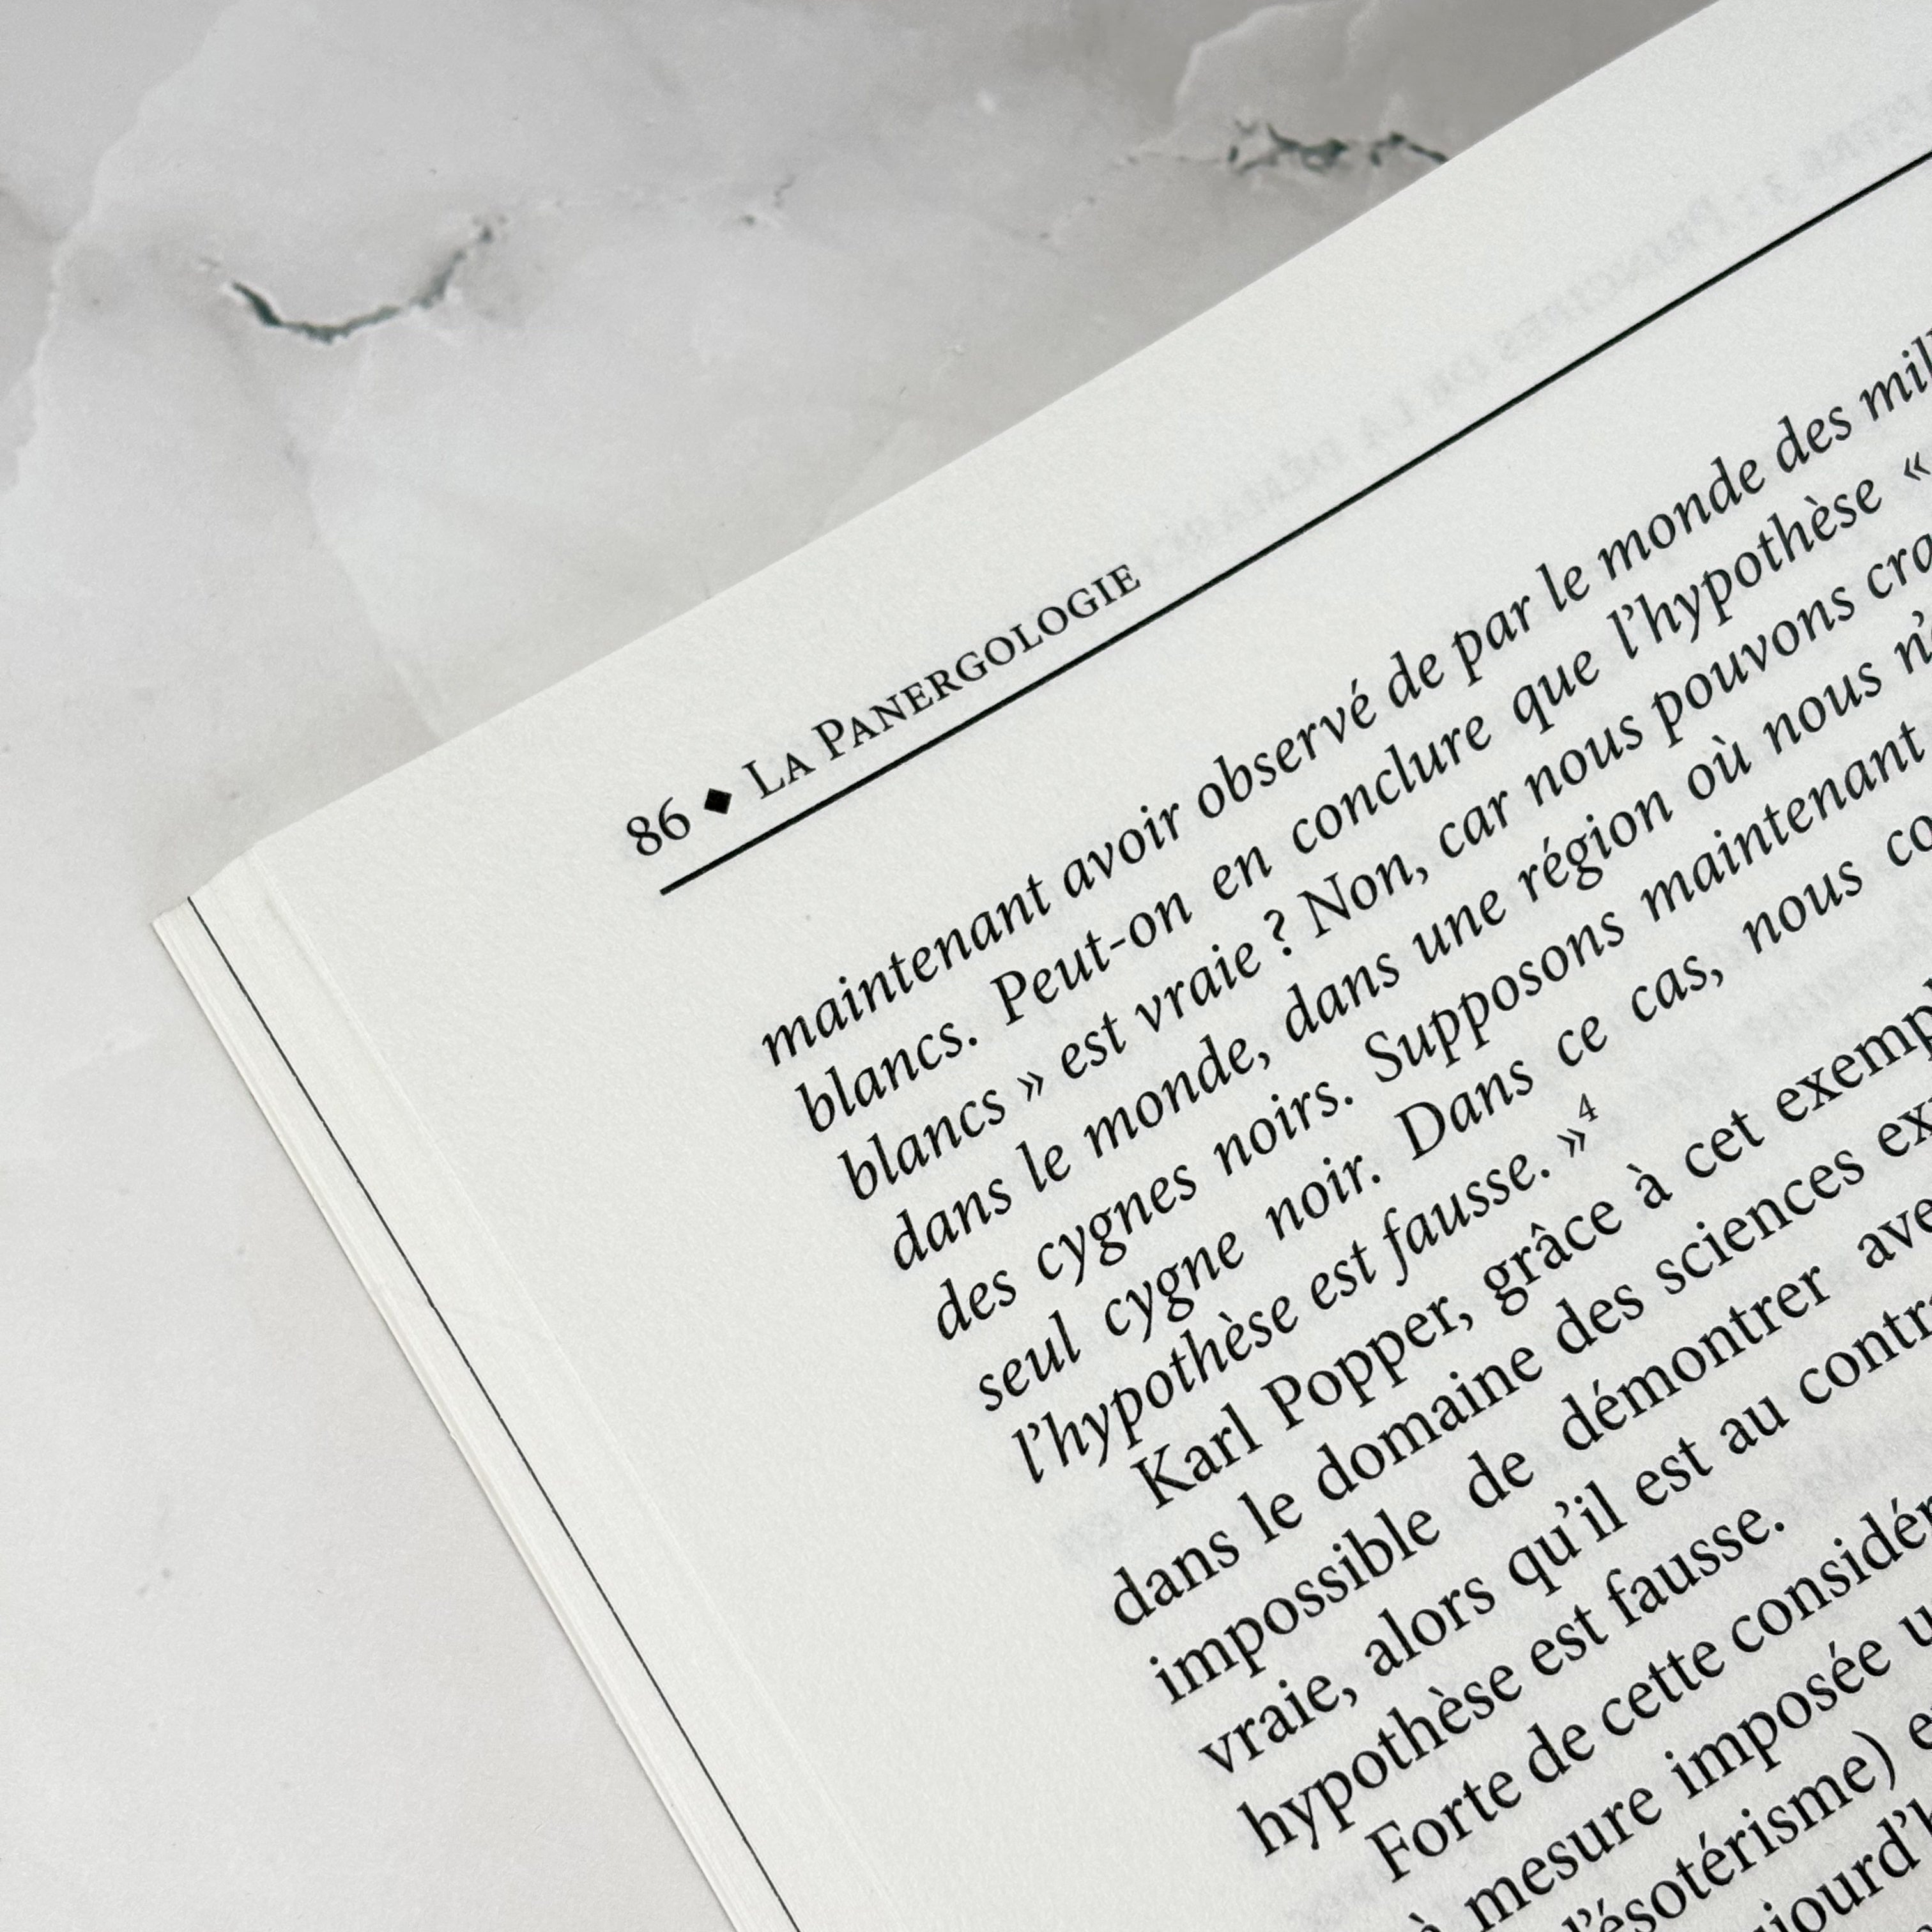 86 ◆ La Panergologie
maintenant avoir observé de par le monde des
blancs. Peut-on en conclure que l'hypothèse «
blancs » est vraie ? Non, car nous pouvons
dans le monde, dans une région où nous
des cygnes noirs. Supposons maintenant
seul cygne noir. Dans ce cas, nous
l'hypothèse est fausse. »4
Karl Popper, grâce à cet
dans le domaine des sciences
impossible de démontrer
vraie, alors qu'il est au
hypothèse est fausse.
Forte de cette
mesure imposée